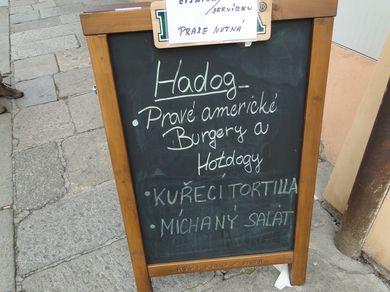 SERVÍRKU
PRAXE NUTNÁ
Hadog
• Pravé americké
Burgery a
Hotdogy
• KUŘECÍ TORTILLA
• MÍCHANÝ SALÁT